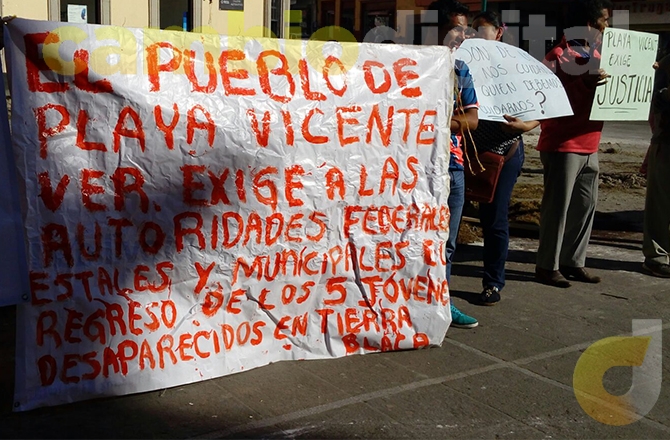 cambiodigital
EL PUEBLO DE
PLAYA VICENTE
VER. EXIGE A LAS
AUTORIDADES FEDERALES
ESTALES Y MUNICIPALES EL
REGRESO DE LOS 5 JÓVENE
DESAPARECIDOS EN TIERRA
BLACA
NOS CUIDAN
QUIEN DEBERIA
CUIDARNOS?
PLAYA VICENTE
EXIGE
JUSTICIA
cd